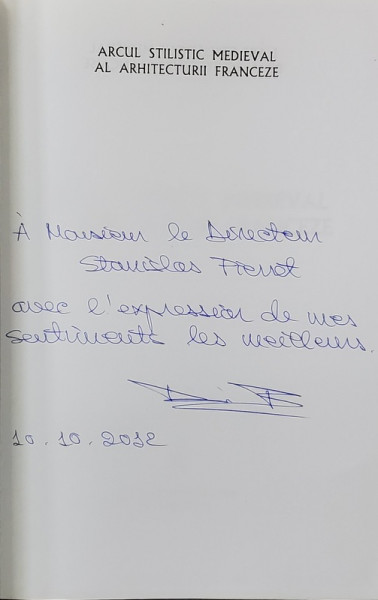 ARCUL STILISTIC MEDIEVAL
AL ARHITECTURII FRANCEZE
À Monsieur le Directeur
Stanislas Pierret
avec l'expression de mes
sentiments les meilleurs.
10.10.2012